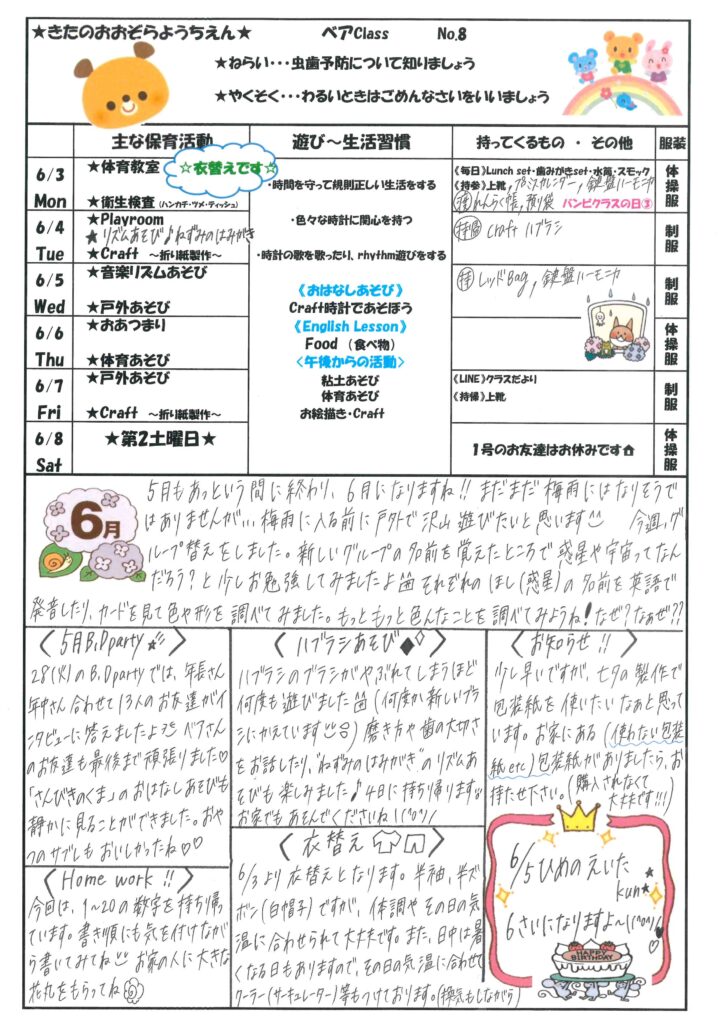 ★きたのおおぞらようちえん★ ベアClass No.8
★ねらい・・・虫歯予防について知りましょう
★やくそく・・・わるいときはごめんなさいをいいましょう
主な保育活動 遊び～生活習慣 持ってくるもの ・ その他 服装
6/3 Mon
★体育教室
☆衣替えです☆
★衛生検査(ハンカチ・ツメ・ティッシュ)
《毎日》Lunch set・歯みがきset・水筒・スモック
《持参》上靴, プラミスカレンダー, 鍵盤ハーモニカ
れんらく帳, 預り袋 バンビクラスの日③
体操服
6/4 Tue
★Playroom
★リズムあそび♪ねずみのはみがき
★Craft ～折り紙製作～
Craft ハブラシ
制服
6/5 Wed
★音楽リズムあそび
★戸外あそび
レッドBag, 鍵盤ハーモニカ
制服
6/6 Thu
★おあつまり
★体育あそび
体操服
6/7 Fri
★戸外あそび
★Craft ～折り紙製作～
《LINE》クラスだより
《持帰》上靴
制服
6/8 Sat
★第2土曜日★
1号のお友達はお休みです
体操服
・時間を守って規則正しい生活をする
・色々な時計に関心を持つ
・時計の歌を歌ったり、rhythm遊びをする
《おはなしあそび》
Craft時計であそぼう
《English Lesson》
Food （食べ物）
<午後からの活動>
粘土あそび
体育あそび
お絵描き・Craft
6月
5月もあっという間に終わり、6月になりますね!! まだまだ梅雨にはなりそうで
はありませんが... 梅雨に入る前に戸外で沢山遊びたいと思います 今週、グ
ループ替えをしました。新しいグループの名前を覚えたところで惑星や宇宙ってなん
だろう?と少しお勉強してみましたよ それぞれのほし(惑星)の名前を英語で
発音したり、カードを見て色や形を調べてみました。もっともっと色んなことを調べてみようね!なぜ?なぁぜ??
〈5月B.D party〉
28(火)のB.D partyでは、年長さん
年中さん合わせて13人のお友達がイ
ンタビューに答えましたよ ベアさん
のお友達も最後まで頑張りました♡
「さんびきのくま」のおはなしあそびも
静かに見ることができました。おや
つのサブレもおいしかったね♡♡
〈Home work!!〉
今回は、1～20の数字を持ち帰っ
ています。書き順にも気を付けなが
ら書いてみてね お家の人に大きな
花丸をもらってね
〈ハブラシあそび◆◇〉
ハブラシのブラシがやぶれてしまうほど
何度も遊びました (何度か新しいブラ
シにかえています) 磨き方や歯の大切さ
をお話したり、"ねずみのはみがき"のリズムあ
そびも楽しみました♪4日に持ち帰りますな
お家でもあそんでくださいね!(^o^)/
〈衣替え〉
6/3より衣替えとなります。半袖、半ズ
ボン(白帽子)ですが、体調やその日の気
温に合わせられて大丈夫です。また、日中は暑
くなる日もありますので、その日の気温に合わせて
クーラー(サーキュレーター)等もつけております。(換気もしながら)
〈お知らせ!!〉
少し早いですが、七夕の製作で
包装紙を使いたいなあと思って
います。お家にある(使わない包装
紙etc)包装紙がありましたら、お
持たせ下さい。(購入されなくて
大丈夫です!!!)
6/5ひめのえいた
kun★
6さいになりますよ～!(^o^)/
HAPPY
BIRTHDAY